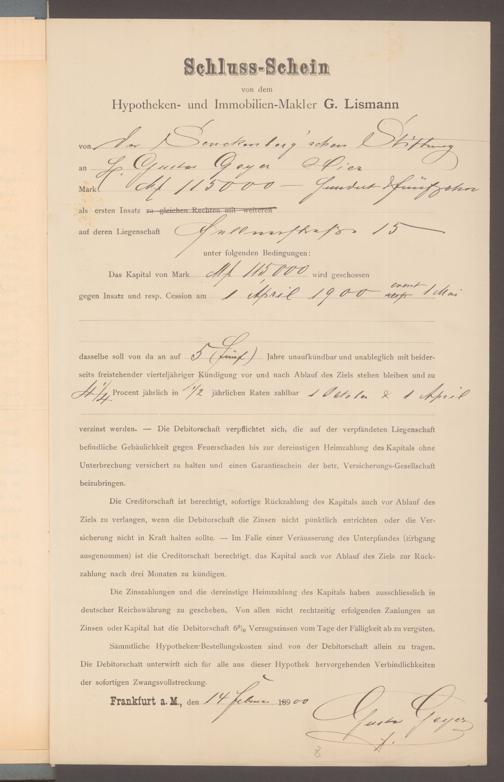 Schluss-Schein
von dem
Hypotheken- und Immobilien-Makler G. Lismann
von der Senckenberg'schen Stiftung
an H. Gustav Geyer Hier
Mark M 115000 — Hundert & fünfzehn
als ersten Insatz zu gleichen Rechten mit weiteren
auf deren Liegenschaft 15
unter folgenden Bedingungen:
Das Kapital von Mark M 115000 wird geschossen
gegen Insatz und resp. Cession am 1 April 1900 event resp 1 Mai
dasselbe soll von da an auf 5 (fünf) Jahre unaufkündbar und unableglich mit beider-
seits freistehender vierteljähriger Kündigung vor und nach Ablauf des Ziels stehen bleiben und zu
4 1/4 Procent jährlich in 1/2 jährlichen Raten zahlbar 1 October & 1 April
verzinst werden. — Die Debitorschaft verpflichtet sich, die auf der verpfändeten Liegenschaft
befindliche Gebäulichkeit gegen Feuerschaden bis zur dereinstigen Heimzahlung des Kapitals ohne
Unterbrechung versichert zu halten und einen Garantieschein der betr. Versicherungs-Gesellschaft
beizubringen.
Die Creditorschaft ist berechtigt, sofortige Rückzahlung des Kapitals auch vor Ablauf des
Ziels zu verlangen, wenn die Debitorschaft die Zinsen nicht pünktlich entrichten oder die Ver-
sicherung nicht in Kraft halten sollte. — Im Falle einer Veräusserung des Unterpfandes (Erbgang
ausgenommen) ist die Creditorschaft berechtigt, das Kapital auch vor Ablauf des Ziels zur Rück-
zahlung nach drei Monaten zu kündigen.
Die Zinszahlungen und die dereinstige Heimzahlung des Kapitals haben ausschliesslich in
deutscher Reichswährung zu geschehen. Von allen nicht rechtzeitig erfolgenden Zahlungen an
Zinsen oder Kapital hat die Debitorschaft 6% Verzugszinsen vom Tage der Fälligkeit ab zu vergüten.
Sämmtliche Hypotheken-Bestellungskosten sind von der Debitorschaft allein zu tragen.
Die Debitorschaft unterwirft sich für alle aus dieser Hypothek hervorgehenden Verbindlichkeiten
der sofortigen Zwangsvollstreckung.
Frankfurt a. M., den 14 Februar 1900
Gustav Geyer
8